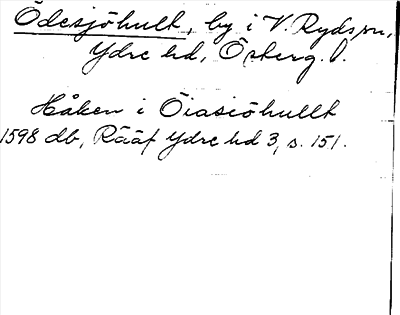 Ödesjöhult, by i V. Ryds sn,
Ydre hd, Österg. l.
Håken i Öiasiöhullt
1598 db, Rääf Ydre hd 3, s. 151.